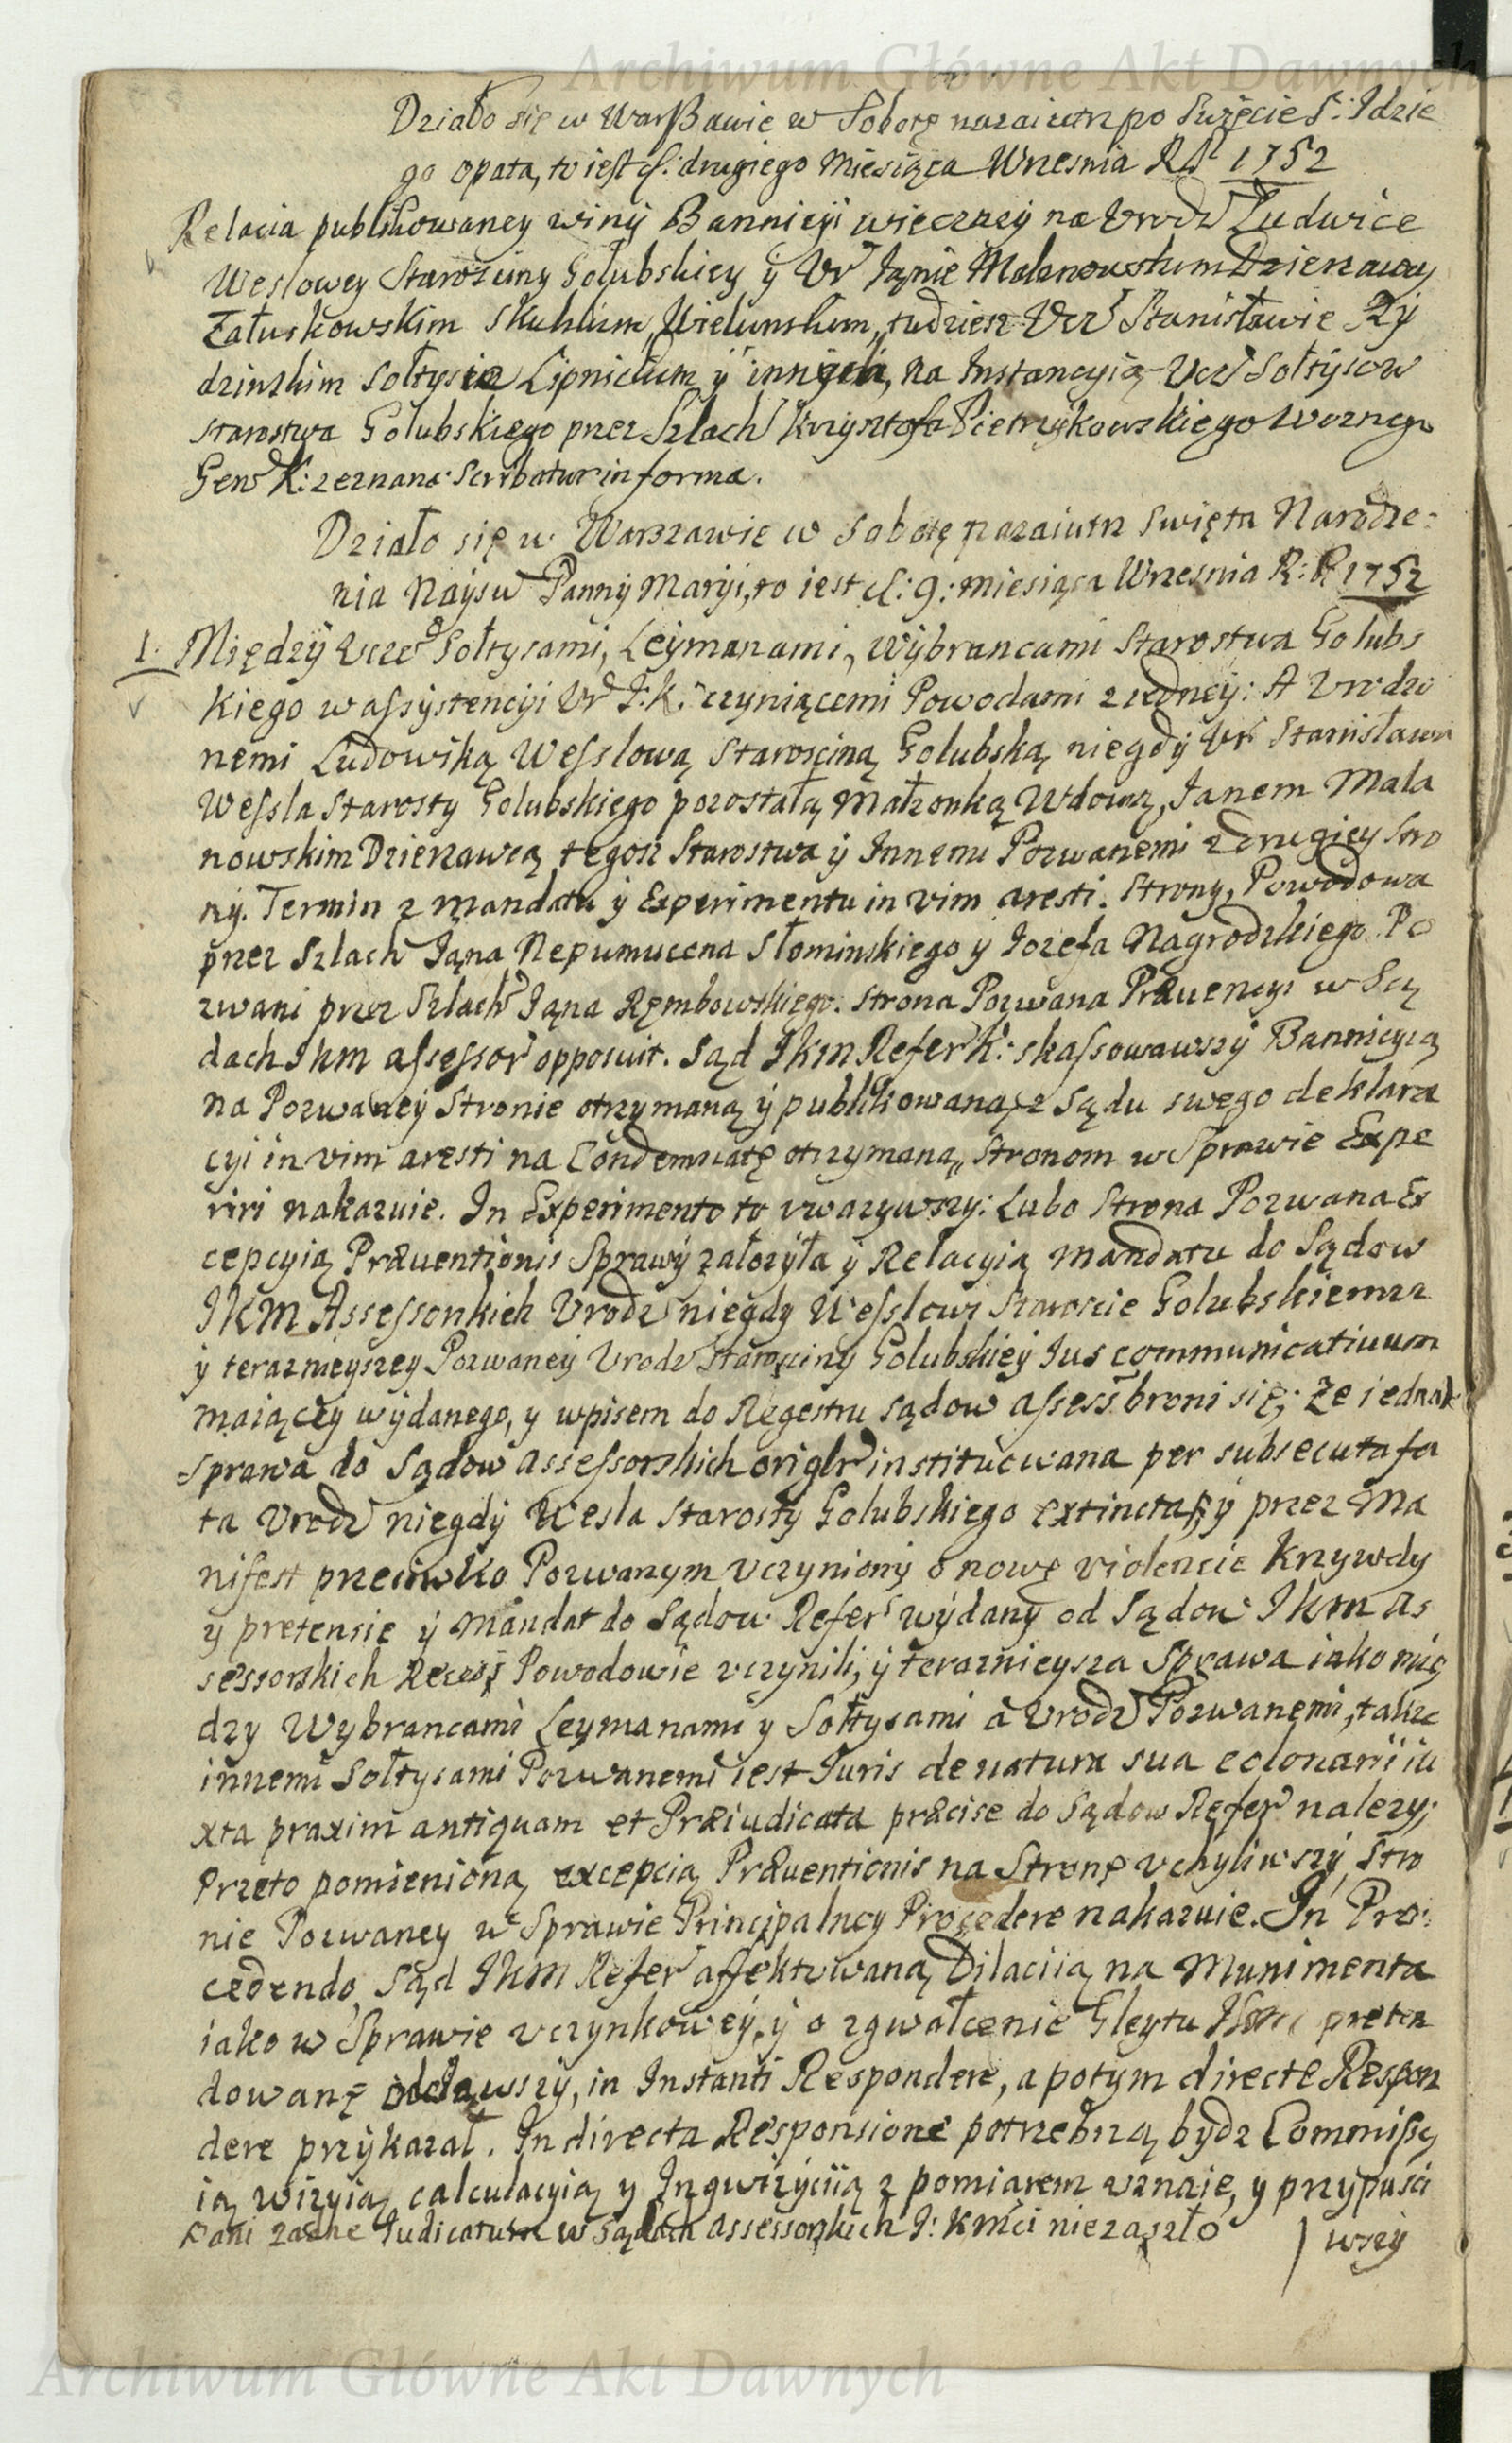 Archiwum Główne Akt Dawnych
Działo się w Warszawie w Sobotę nazaiutrz po Swięcie S: Idzie
go opata, to iest d: drugiego Miesiąca Wrzesnia R P 1752
Relacia publikowaney winy Bannicyi wieczney na Vrodz Ludwice
Weslowey Starościny Gołubskiey y Vr Janie Malanowskim Dzierzawcy
Załuskowskim Wielunskim, tudziesz Vcz Stanisławie Ry
dzinskim Sołtysie Lipnickim y innych, na Instancyią Vcz Sołtysow
starostwa Golubskiego przez Szlach Krzysztofa Pietrzykowskiego Woznego
Gen K: zeznana. Scribatur in forma.
Działo się w Warszawie w Sobotę nazaiutrz swięta Narodze:
nia Nayśw Panny Maryi, to iest d: 9: miesiąca Wrzesnia R: P 1752
1. Między Vczc Sołtysami, Leymanami, Wybrancami Starostwa Golubs
kiego w assystencyi Vr I. K. czyniącemi Powodami z iedney: A Vrodzo
nemi Ludowiką Wesslową Starosciną Golubską niegdy Vr Stanisława
Wessla Starosty Golubskiego pozostałą Małzonką Wdową, Janem Mala
nowskim Dzierzawcą tegosz Starostwa y Innemi Pozwanemi z drugiey stro
ny. Termin z mandatu y Experimentu in vim aresti. Strony, Powodowa
przez Szlach Jana Nepumucena Słominskiego y Iozefa Nagrodzkiego. Po
zwani przez Szlach Jana Rembowskiego. Strona Pozwana Præuencyi w Są
dach Ikm assessor opposuit. Sąd Ikm Refer K: skassowawszy Bannicyią
na Pozwaney Stronie otrzymaną y publikowaną, z Sądu swego deklara
cyi in vim aresti na Condemnatę otrzymaną, Stronom w Sprawie Expe
riri nakazuie. In Experimento to vwazywszy: Lubo Strona Pozwana Ex
cepcyią Præuentionis Sprawy załozyła y Relacyią mandatu do Sądow
IKM Assessorskich Vrodz niegdy Wesslowi Staroscie Golubskiemu
y teraznieyszey Pozwaney Vrodz Starosciny Golubskiey Ius communicatiuum
maiącey wydanego, y wpisem do Regestru sądow assess broni się; Ze iednak
sprawa do Sądow assessorskich originalr instituowana per subsecuta fa
ta Vrodz niegdy Wesla Starosty Golubskiego extincta, y przez Ma
nifest przeciwko Pozwanym vczyniony o nowe violencie Krzywdy
y pretensie y mandat do Sądow Refer wydany od Sądow Ikm As
sessorskich Recess Powodowie vczynili, y teraznieysza Sprawa iako mię
dzy Wybrancami Leymanami y Sołtysami a Vrodz Pozwanemi, takze
innemi Sołtysami Pozwanemi iest Iuris de natura sua colonarii iu
xta praxim antiquam et Præiudicata præcise do Sądow Refer nalezy;
Przeto pomienioną excepcią Præuentionis na Stronę vchyliwszy, Stro
nie Pozwaney w Sprawie Principalney Procedere nakazuie. In Pro:
cedendo, Sąd Ikm Refer affektowaną Dilaciią na Munimenta
iako w Sprawie vczynkowey, y o zgwałcenie Gleytu preten
dowane odciąwszy, in Instanti Respondere, a potym directe Respon
dere przykazał. In directa Responsione potrzebną bydz Commissy
ią, wizyią, calculacyią y Inqwizyciią z pomiarem vznaie, y przypusci
/ wszy
ani zadne Iudicatum w Sądach Assessorskich I: Kmci niezaszło
Archiwum Główne Akt Dawnych